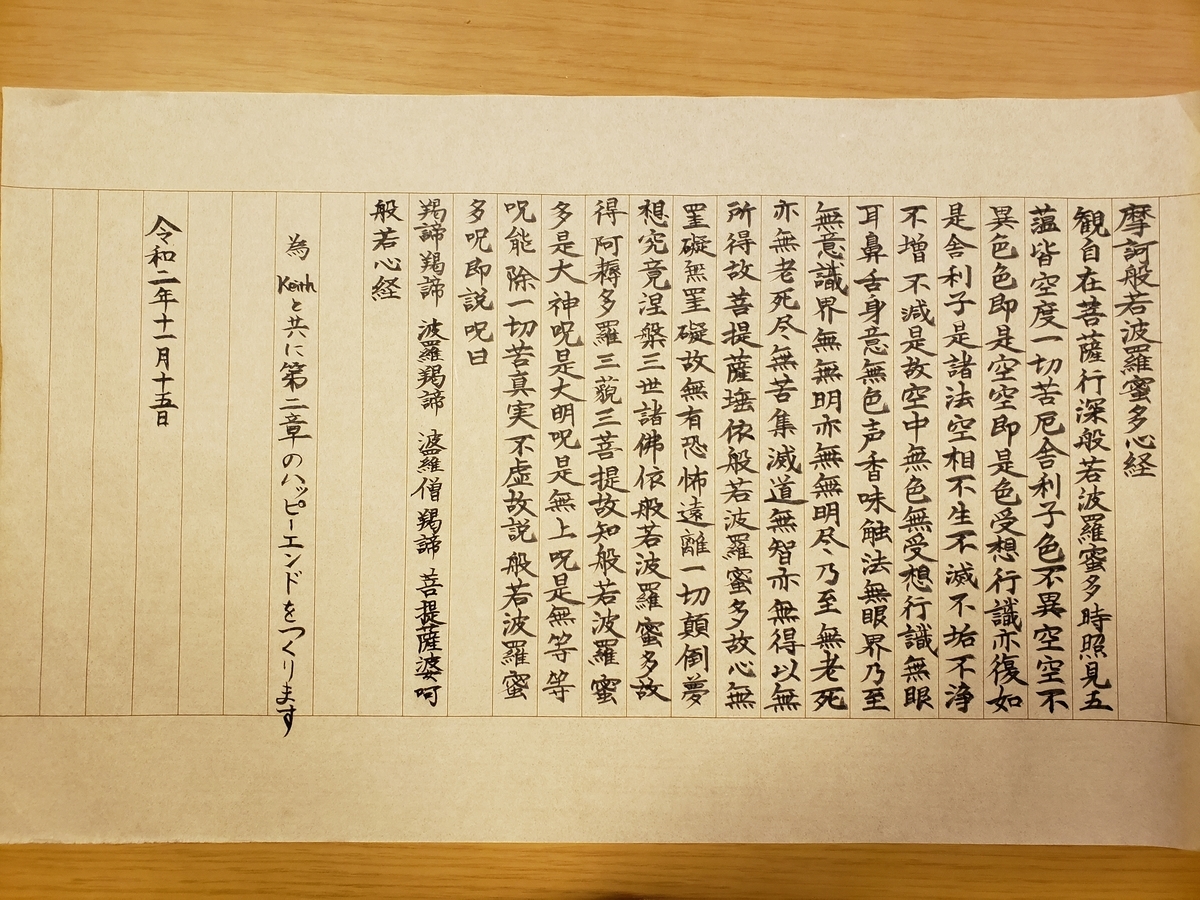 摩訶般若波羅蜜多心経
観自在菩薩行深般若波羅蜜多時照見五
蘊皆空度一切苦厄舎利子色不異空空不
異色色即是空空即是色受想行識亦復如
是舎利子是諸法空相不生不滅不垢不浄
不増不減是故空中無色無受想行識無眼
耳鼻舌身意無色声香味触法無眼界乃至
無意識界無無明亦無無明尽乃至無老死
亦無老死尽無苦集滅道無智亦無得以無
所得故菩提薩埵依般若波羅蜜多故心無
罣礙無罣礙故無有恐怖遠離一切顛倒夢
想究竟涅槃三世諸佛依般若波羅蜜多故
得阿耨多羅三藐三菩提故知般若波羅蜜
多是大神呪是大明呪是無上呪是無等等
呪能除一切苦真実不虚故説般若波羅蜜
多呪即説呪曰
羯諦羯諦 波羅羯諦 波羅僧羯諦 菩提薩婆呵
般若心経
為 Keithと共に第二章のハッピーエンドをつくります
令和二年十一月十五日